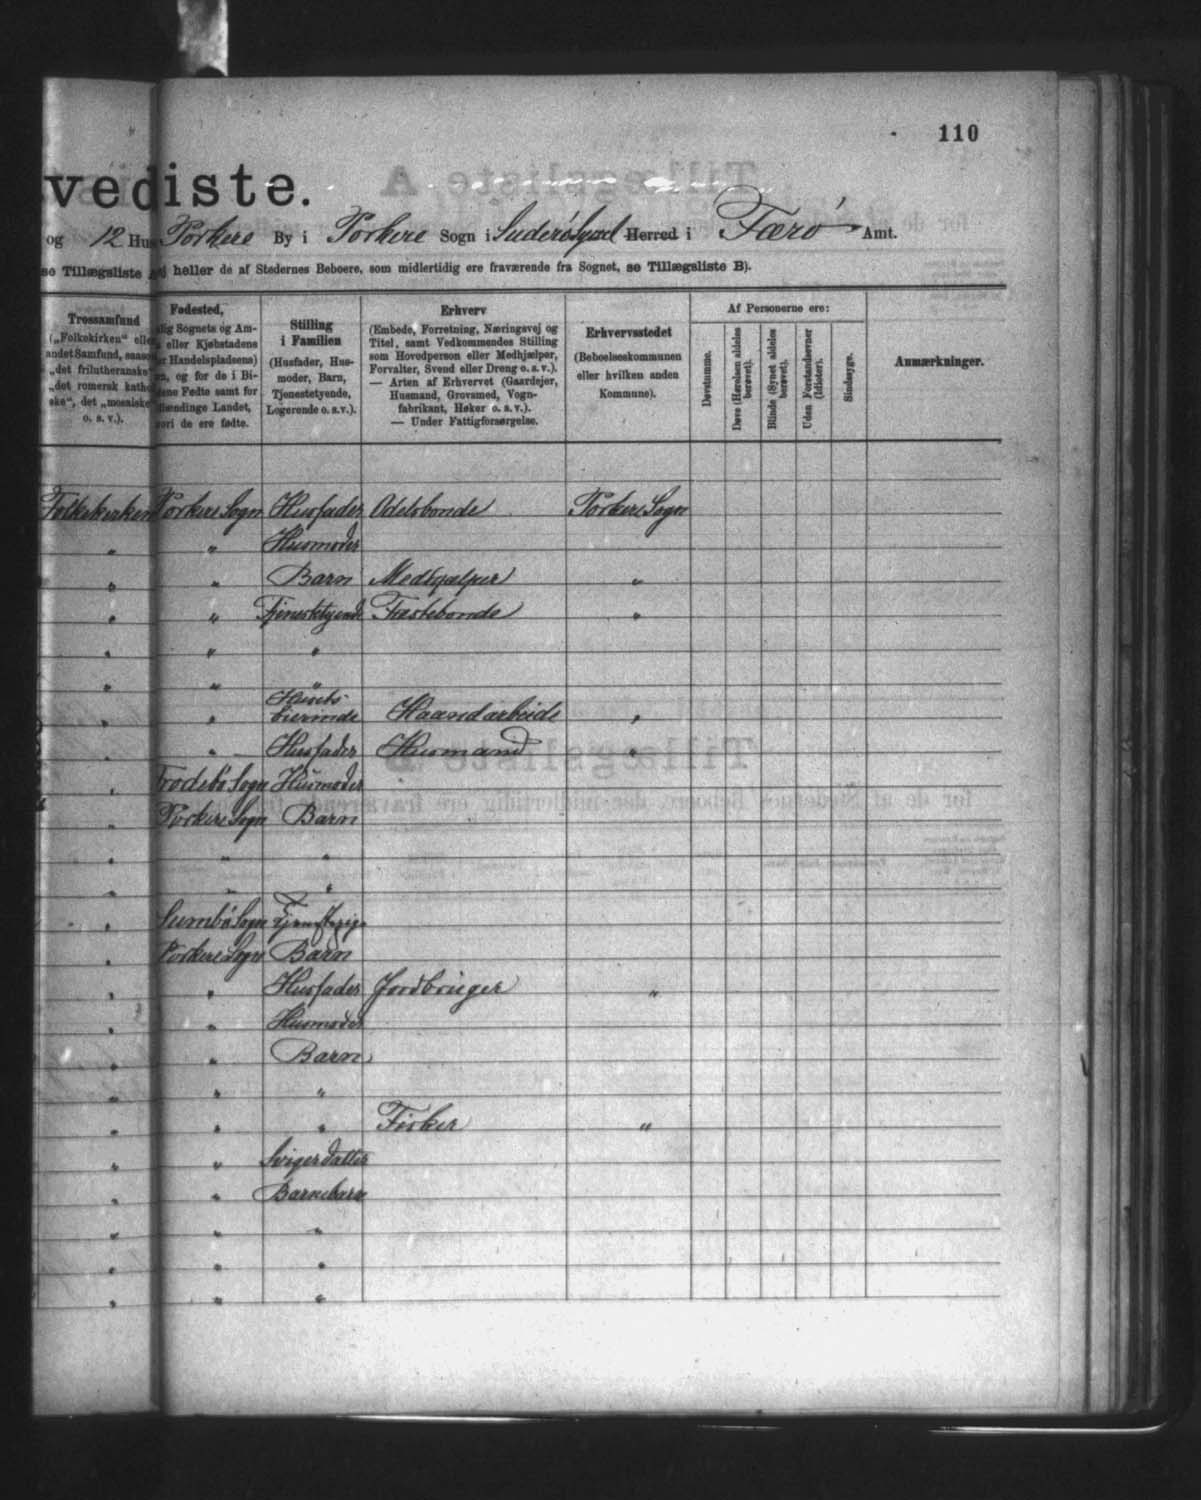 110
vediste.
og 12 Hus Porkere By i Porkere Sogn i Suderø Syssel Herred i Færø Amt.
se Tillægsliste heller de af Stedernes Beboere, som midlertidig ere fraværende fra Sognet, se Tillægsliste B).
Trossamfund
(„Folkekirken“ eller
andet Samfund, saasom
„det frilutheranske“,
„det romersk katho
ske“, det „mosaiske
o. s. v.).
Fødested,
lig Sognets og Am-
eller Kjøbstadens
er Handelspladsens)
en, og for de i Bi-
dene Fødte samt for
dlændinge Landet,
vori de ere fødte.
Stilling
i Familien
(Husfader, Hus-
moder, Barn,
Tjenestetyende,
Logerende o. s. v.).
Erhverv
(Embede, Forretning, Næringsvej og
Titel, samt Vedkommendes Stilling
som Hovedperson eller Medhjælper,
Forvalter, Svend eller Dreng o. s. v.).
— Arten af Erhvervet (Gaardejer,
Husmand, Grovsmed, Vogn-
fabrikant, Høker o. s. v.).
— Under Fattigforsørgelse.
Erhvervsstedet
(Beboelseskommunen
eller hvilken anden
Kommune).
Af Personerne ere:
Døvstumme.
Døve (Hørelsen aldeles
berøvet).
Blinde (Synet aldeles
berøvet).
Uden Forstandsevner
(Idioter).
Sindssyge.
Anmærkninger.
Folkekirken Porkere Sogn Husfader Odelsbonde Porkere Sogn
" " Husmoder
" " Barn Medhjælper "
" " Tjenestetyende Fæstebonde "
" " "
" " "
" " Huusbestyrerinde Haandarbeide "
" " Husfader Husmand "
" Frodebø Sogn Husmoder
" Porkere Sogn Barn
" " "
" " "
" Sumbø Sogn Tjenestepige
" Porkere Sogn Barn
" " Husfader Jordbruger "
" " Husmoder
" " Barn
" " "
" " " Fisker "
" " Svigerdatter
" " Barnebarn
" " "
" " "
" " "